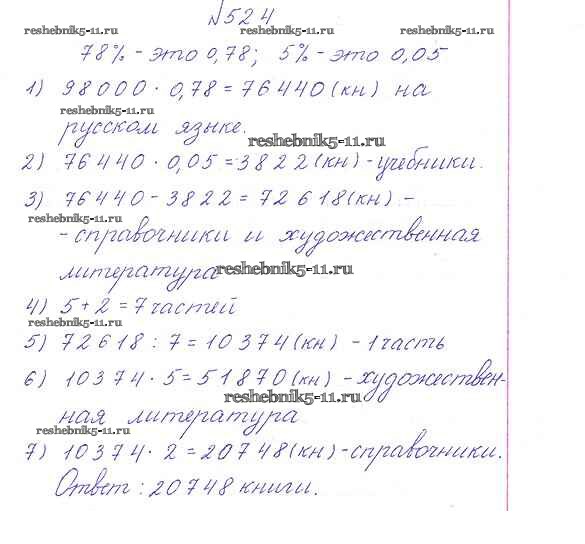 №524
reshebnik5-11.ru reshebnik5-11.ru reshebnik5-11.ru
78% - это 0,78; 5% - это 0,05
1) 98000 · 0,78 = 76440 (кн) на
reshebnik5-11.ru
русском языке.
reshebnik5-11.ru
2) 76440 · 0,05 = 3822 (кн) - учебники.
3) 76440 - 3822 = 72618 (кн) -
reshebnik5-11.ru
- справочники и художественная
литература reshebnik5-11.ru
4) 5 + 2 = 7 частей
reshebnik5-11.ru
5) 72618 : 7 = 10374 (кн) - 1 часть
6) 10374 · 5 = 51870 (кн) - художествен-
reshebnik5-11.ru
ная литература
reshebnik5-11.ru
7) 10374 · 2 = 20748 (кн) - справочники.
Ответ: 20748 книги.